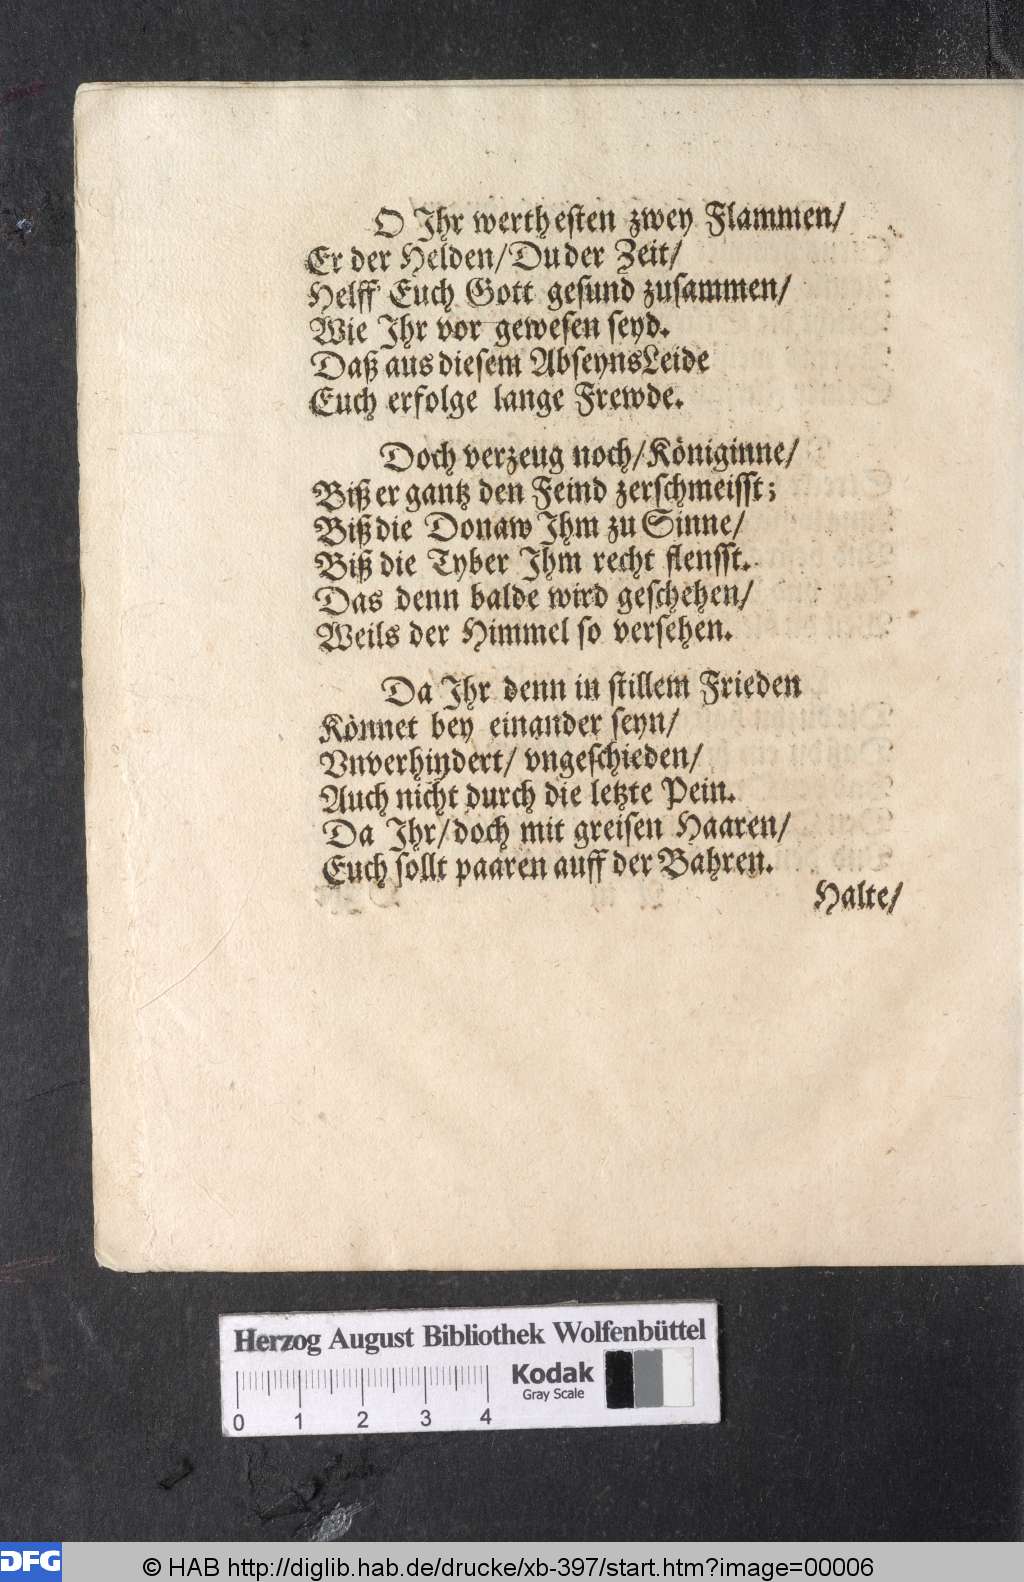 O Ihr werthesten zwey Flammen/
Er der Helden/ Du der Zeit/
Helff' Euch Gott gesund zusammen/
Wie Ihr vor gewesen seyd.
Daß aus diesem AbseynsLeide
Euch erfolge lange Frewde.
Doch verzeug noch/ Königinne/
Biß er gantz den Feind zerschmeisst;
Biß die Donaw Ihm zu Sinne/
Biß die Tyber Ihm recht fleusst.
Das denn balde wird geschehen/
Weils der Himmel so versehen.
Da Ihr denn in stillem Frieden
Könnet bey einander seyn/
Vnverhindert/ vngeschieden/
Auch nicht durch die letzte Pein.
Da Ihr/ doch mit greisen Haaren/
Euch sollt paaren auff der Bahren.
Halte/
Herzog August Bibliothek Wolfenbüttel
Kodak
Gray Scale
0 1 2 3 4
DFG
© HAB http://diglib.hab.de/drucke/xb-397/start.htm?image=00006